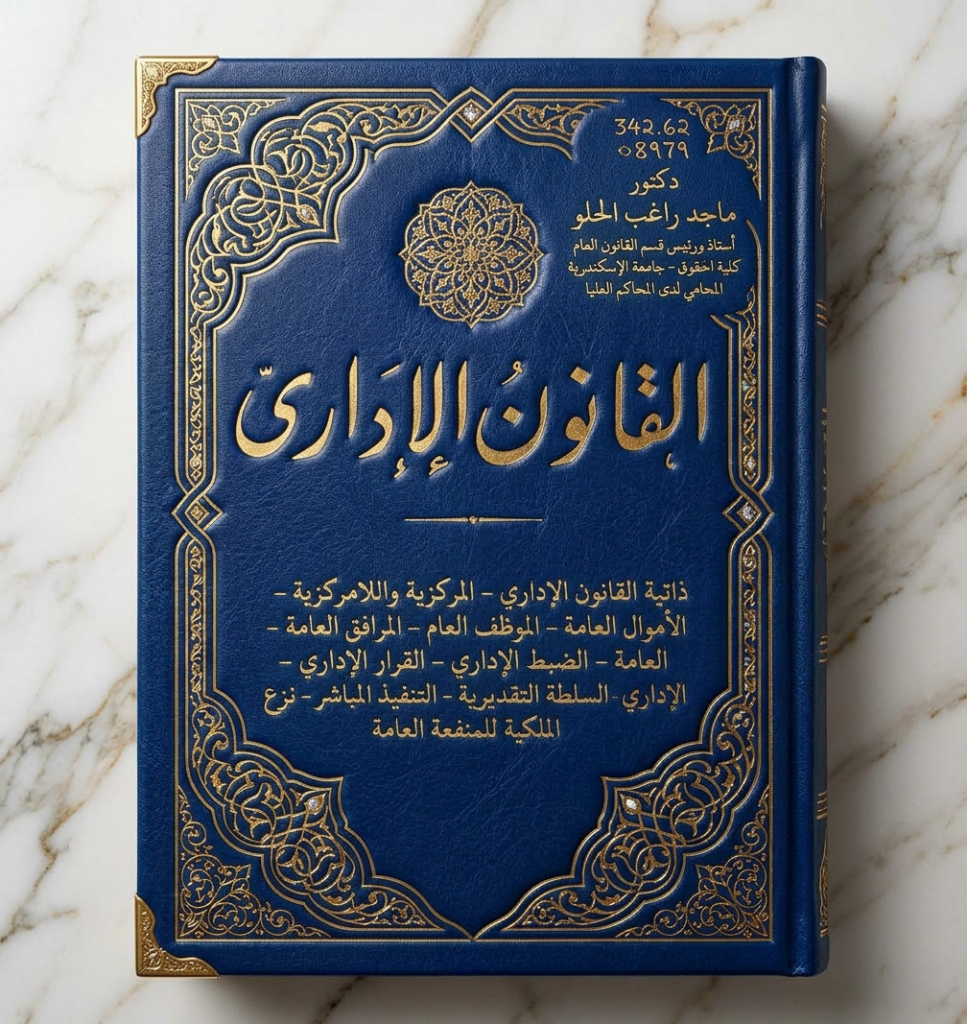 342.62
08979
دكتور
ماجد راغب الحلو
أستاذ ورئيس قسم القانون العام
كلية احقوق - جامعة الإسكندرية
المحامي لدى المحاكم العليا
القانونُ الإدَارىّ
ذاتية القانون الإداري – المركزية واللامركزية –
الأموال العامة – الموظف العام – المرافق العامة –
العامة – الضبط الإداري – القرار الإداري –
الإداري - السلطة التقديرية – التنفيذ المباشر – نزع
الملكية للمنفعة العامة